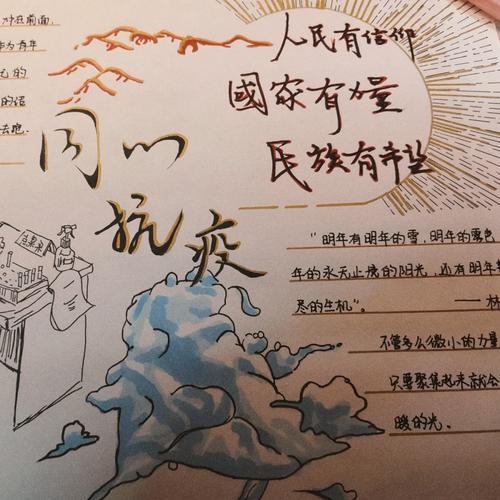 冲在前面.
的
的话
去跑.
人民有信仰
國家有力量
民族有希望
同心
抗疫
"明年有明年的雪,明年的
年的永无止境的阳光,还有明年
尽的生机"。——
不管多么微小的力量
只要聚集起来就会
暖的光.